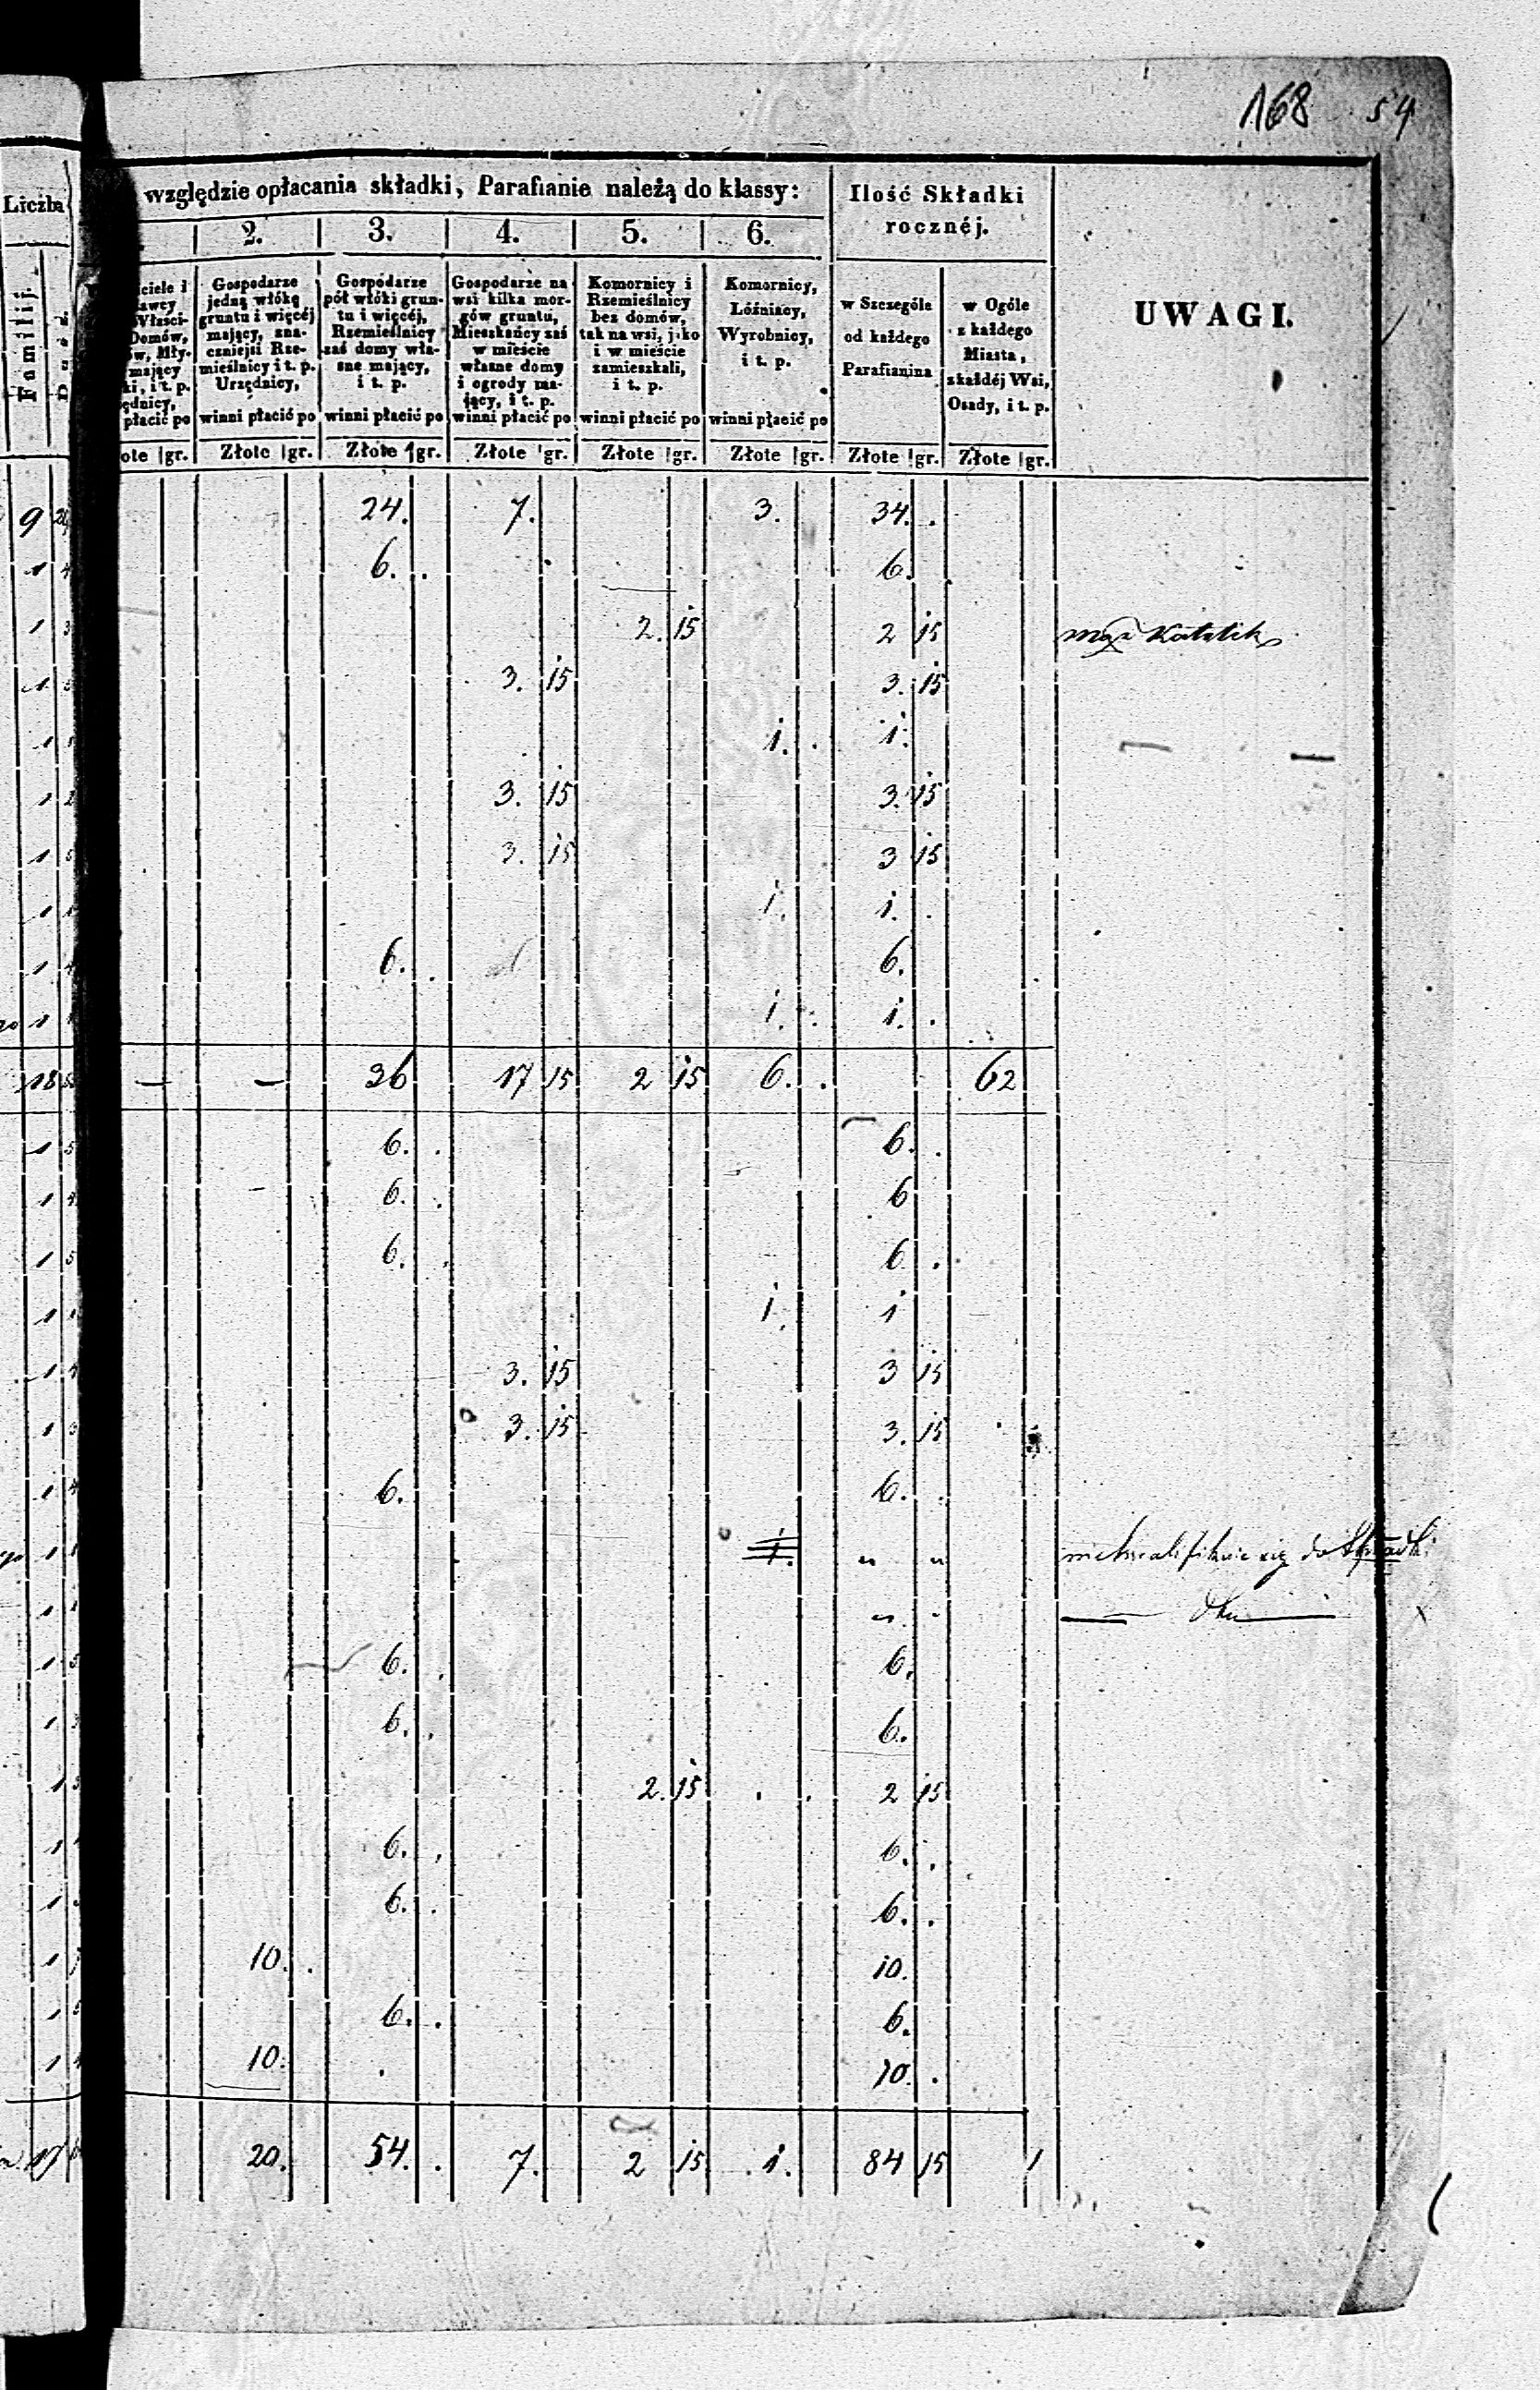 168 54
Liczba względzie opłacania składki, Parafianie należą do klassy: Ilość Składki rocznéj. UWAGI.
2. 3. 4. 5. 6.
Familij.
ciele i
Właści-
Domów,
ów, Mły-
mający
ki, i t. p.
ędnicy,
płacić po
Gospodarze
jedną włókę
gruntu i więcéj
mający, zna-
czniejsi Rze-
mieślnicy i t. p.
Urzędnicy,
winni płacić po
Gospodarze
pół włóki grun-
tu i więcéj,
Rzemieślnicy
zaś domy wła-
sne mający,
i t. p.
winni płacić po
Gospodarze na
wsi kilka mor-
gów gruntu,
Mieszkańcy zaś
w mieście
własne domy
i ogrody ma-
jący, i t. p.
winni płacić po
Komornicy i
Rzemieślnicy
bez domów,
tak na wsi, jako
i w mieście
zamieszkali,
i t. p.
winni płacić po
Komornicy,
Lóźniacy,
Wyrobnicy,
i t. p.
winni płacić po
w Szczególe
od każdego
Parafianina
w Ogóle
z każdego
Miasta,
zkażdéj Wsi,
Osady, i t. p.
ote gr. Złote gr. Złote gr. Złote gr. Złote gr. Złote gr. Złote gr. Złote gr.
9 24. 7. 3. 34.
1 6. 6.
1 3 2. 15 2 15 mąż Katolik
1 3. 15 3. 15
1 1. 1.
1 3. 15 3. 15
1 3. 15 3 15
1 1. 1.
1 6. 6.
1 1. 1.
18 — — 36 17 15 2 15 6. 62
1 5 6. 6.
1 6. 6
1 6. 6
1 1. 1
1 3. 15 3 15
1 3. 15 3. 15
1 6. 6.
1 1 1. " " niekwalifikuie się do Składki
1 " "
1 6. 6.
1 6. 6.
1 2. 15 2 15
1 6. 6.
1 6. 6.
1 10. 10.
1 6. 6.
1 10. 10.
17 20. 54. 7. 2 15 1. 84 15